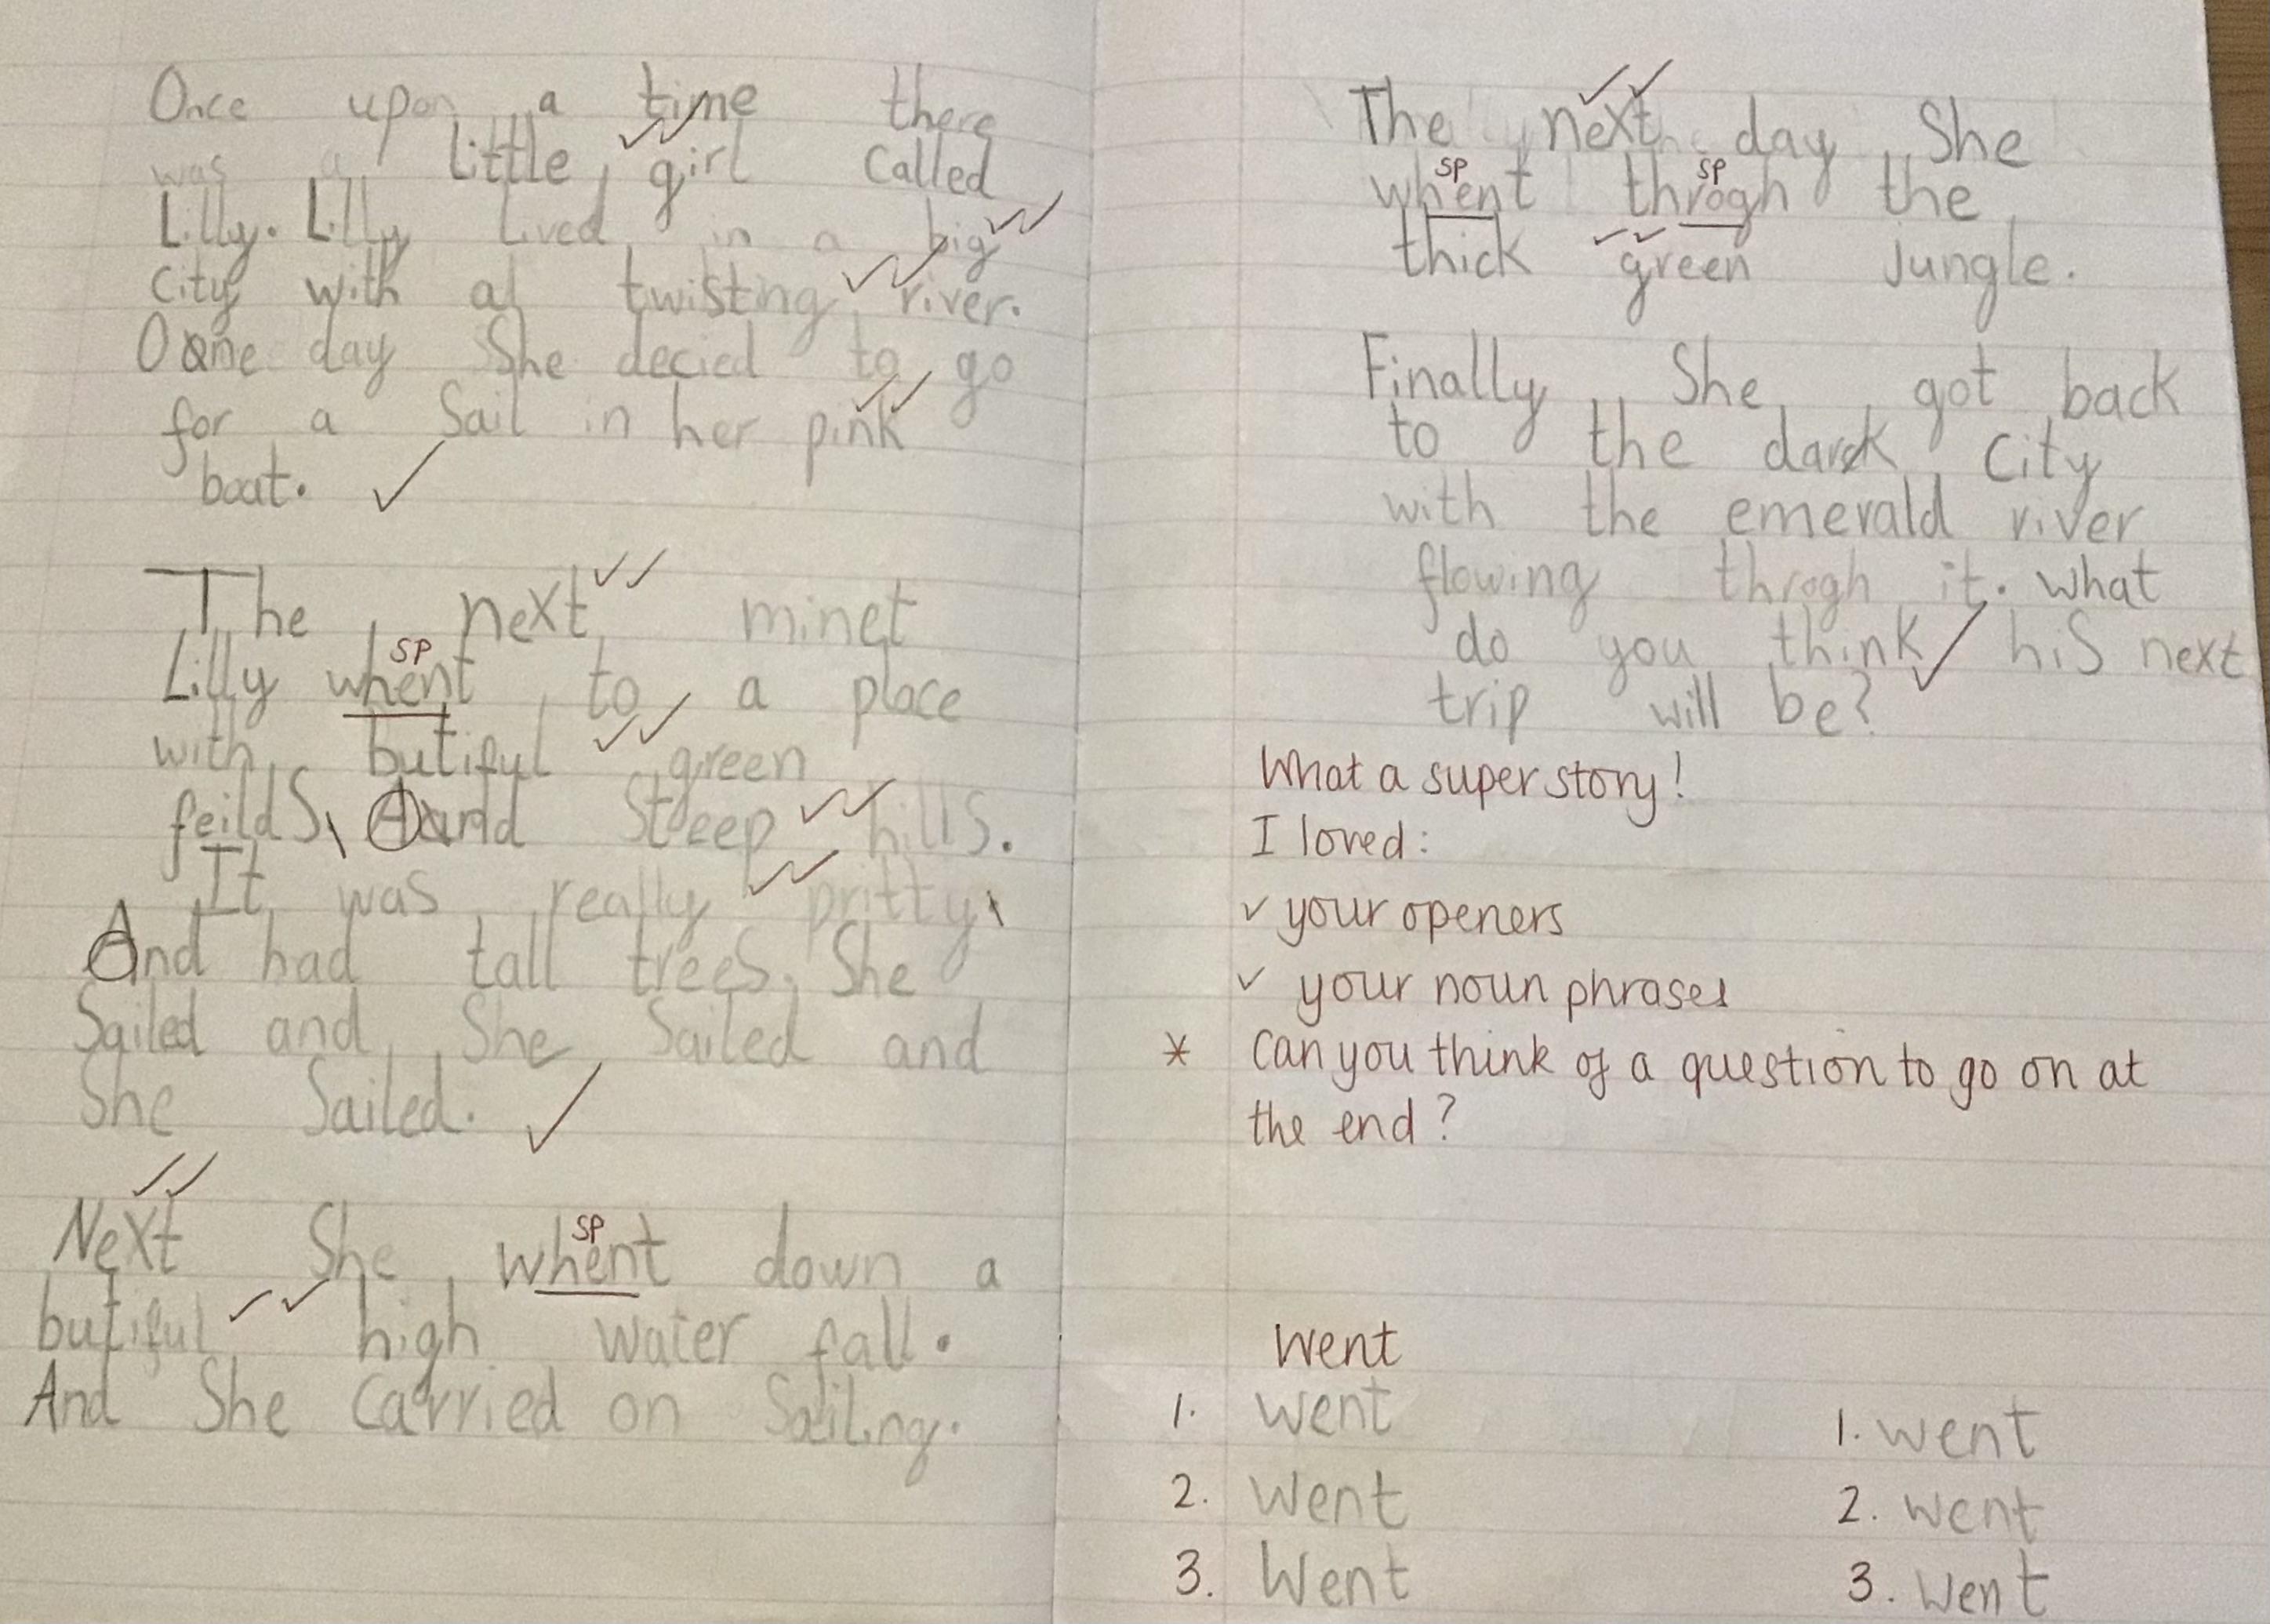 Once upon a time there
was a little girl called
Lilly. Lilly lived in a big
city with a twisting river.
One day She decied to go
for a Sail in her pink
boat.
The next minet
SP
Lilly whent to a place
with butiful green
feildS, And Steep hills.
It was really pritty
And had tall trees. She
Sailed and She Sailed and
She Sailed.
Next She whent down a
SP
butiful high water fall.
And She carried on Sailing.
The next day She
SP SP
whent throgh the
thick green jungle.
Finally She got back
to the dark city
with the emerald river
flowing throgh it. what
do you think hiS next
trip will be?
What a super story!
I loved:
✓ your openers
✓ your noun phrases
* Can you think of a question to go on at
the end?
Went
1. went
2. went
3. Went
1. went
2. went
3. went